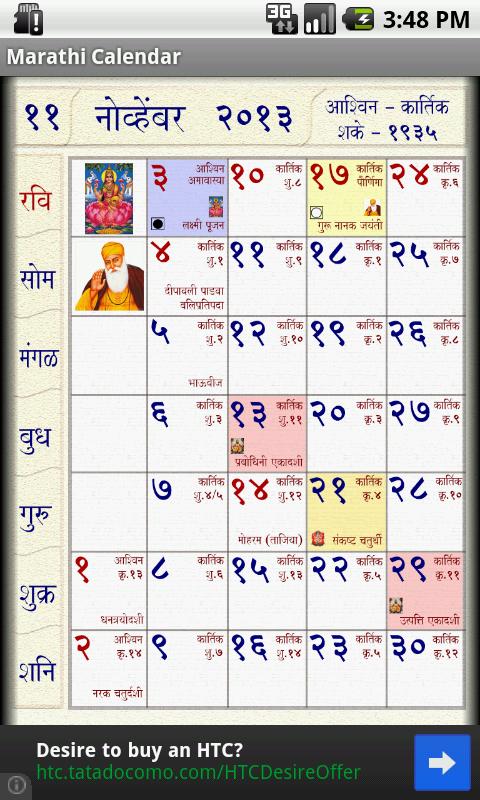 3G
3:48 PM
Marathi Calendar
११ नोव्हेंबर २०१३
आश्विन - कार्तिक
शके - १९३५
रवि
३ आश्विन
अमावास्या
लक्ष्मी पूजन
१० कार्तिक
शु.८
१७ कार्तिक
पौर्णिमा
गुरू नानक जयंती
२४ कार्तिक
कृ.६
सोम
४ कार्तिक
शु.१
दीपावली पाडवा
बलिप्रतिपदा
११ कार्तिक
शु.९
१८ कार्तिक
कृ.१
२५ कार्तिक
कृ.७
मंगळ
५ कार्तिक
शु.२
भाऊबीज
१२ कार्तिक
शु.१०
१९ कार्तिक
कृ.२
२६ कार्तिक
कृ.८
बुध
६ कार्तिक
शु.३
१३ कार्तिक
शु.११
प्रबोधिनी एकादशी
२० कार्तिक
कृ.३
२७ कार्तिक
कृ.९
गुरू
७ कार्तिक
शु.४/५
१४ कार्तिक
शु.१२
मोहरम (ताजिया)
२१ कार्तिक
कृ.४
संकष्ट चतुर्थी
२८ कार्तिक
कृ.१०
शुक्र
१ आश्विन
कृ.१३
धनत्रयोदशी
८ कार्तिक
शु.६
१५ कार्तिक
शु.१३
२२ कार्तिक
कृ.५
२९ कार्तिक
कृ.११
उत्पत्ति एकादशी
शनि
२ आश्विन
कृ.१४
नरक चतुर्दशी
९ कार्तिक
शु.७
१६ कार्तिक
शु.१४
२३ कार्तिक
कृ.५
३० कार्तिक
कृ.१२
Desire to buy an HTC?
htc.tatadocomo.com/HTCDesireOffer